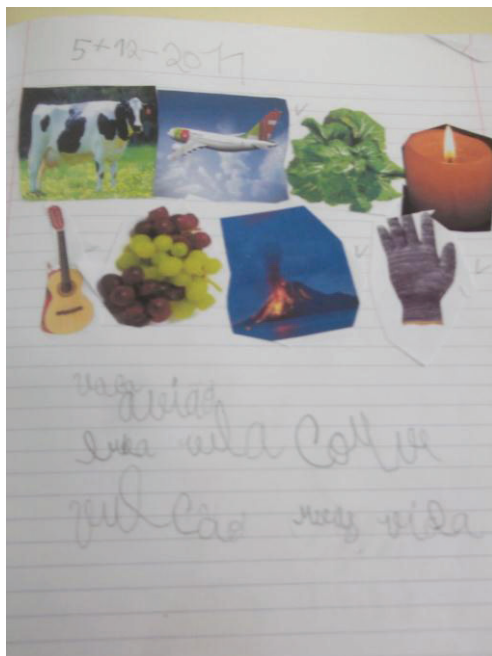 5+12-2011
vaca
aviao
luva vela Couve
vulcão vida